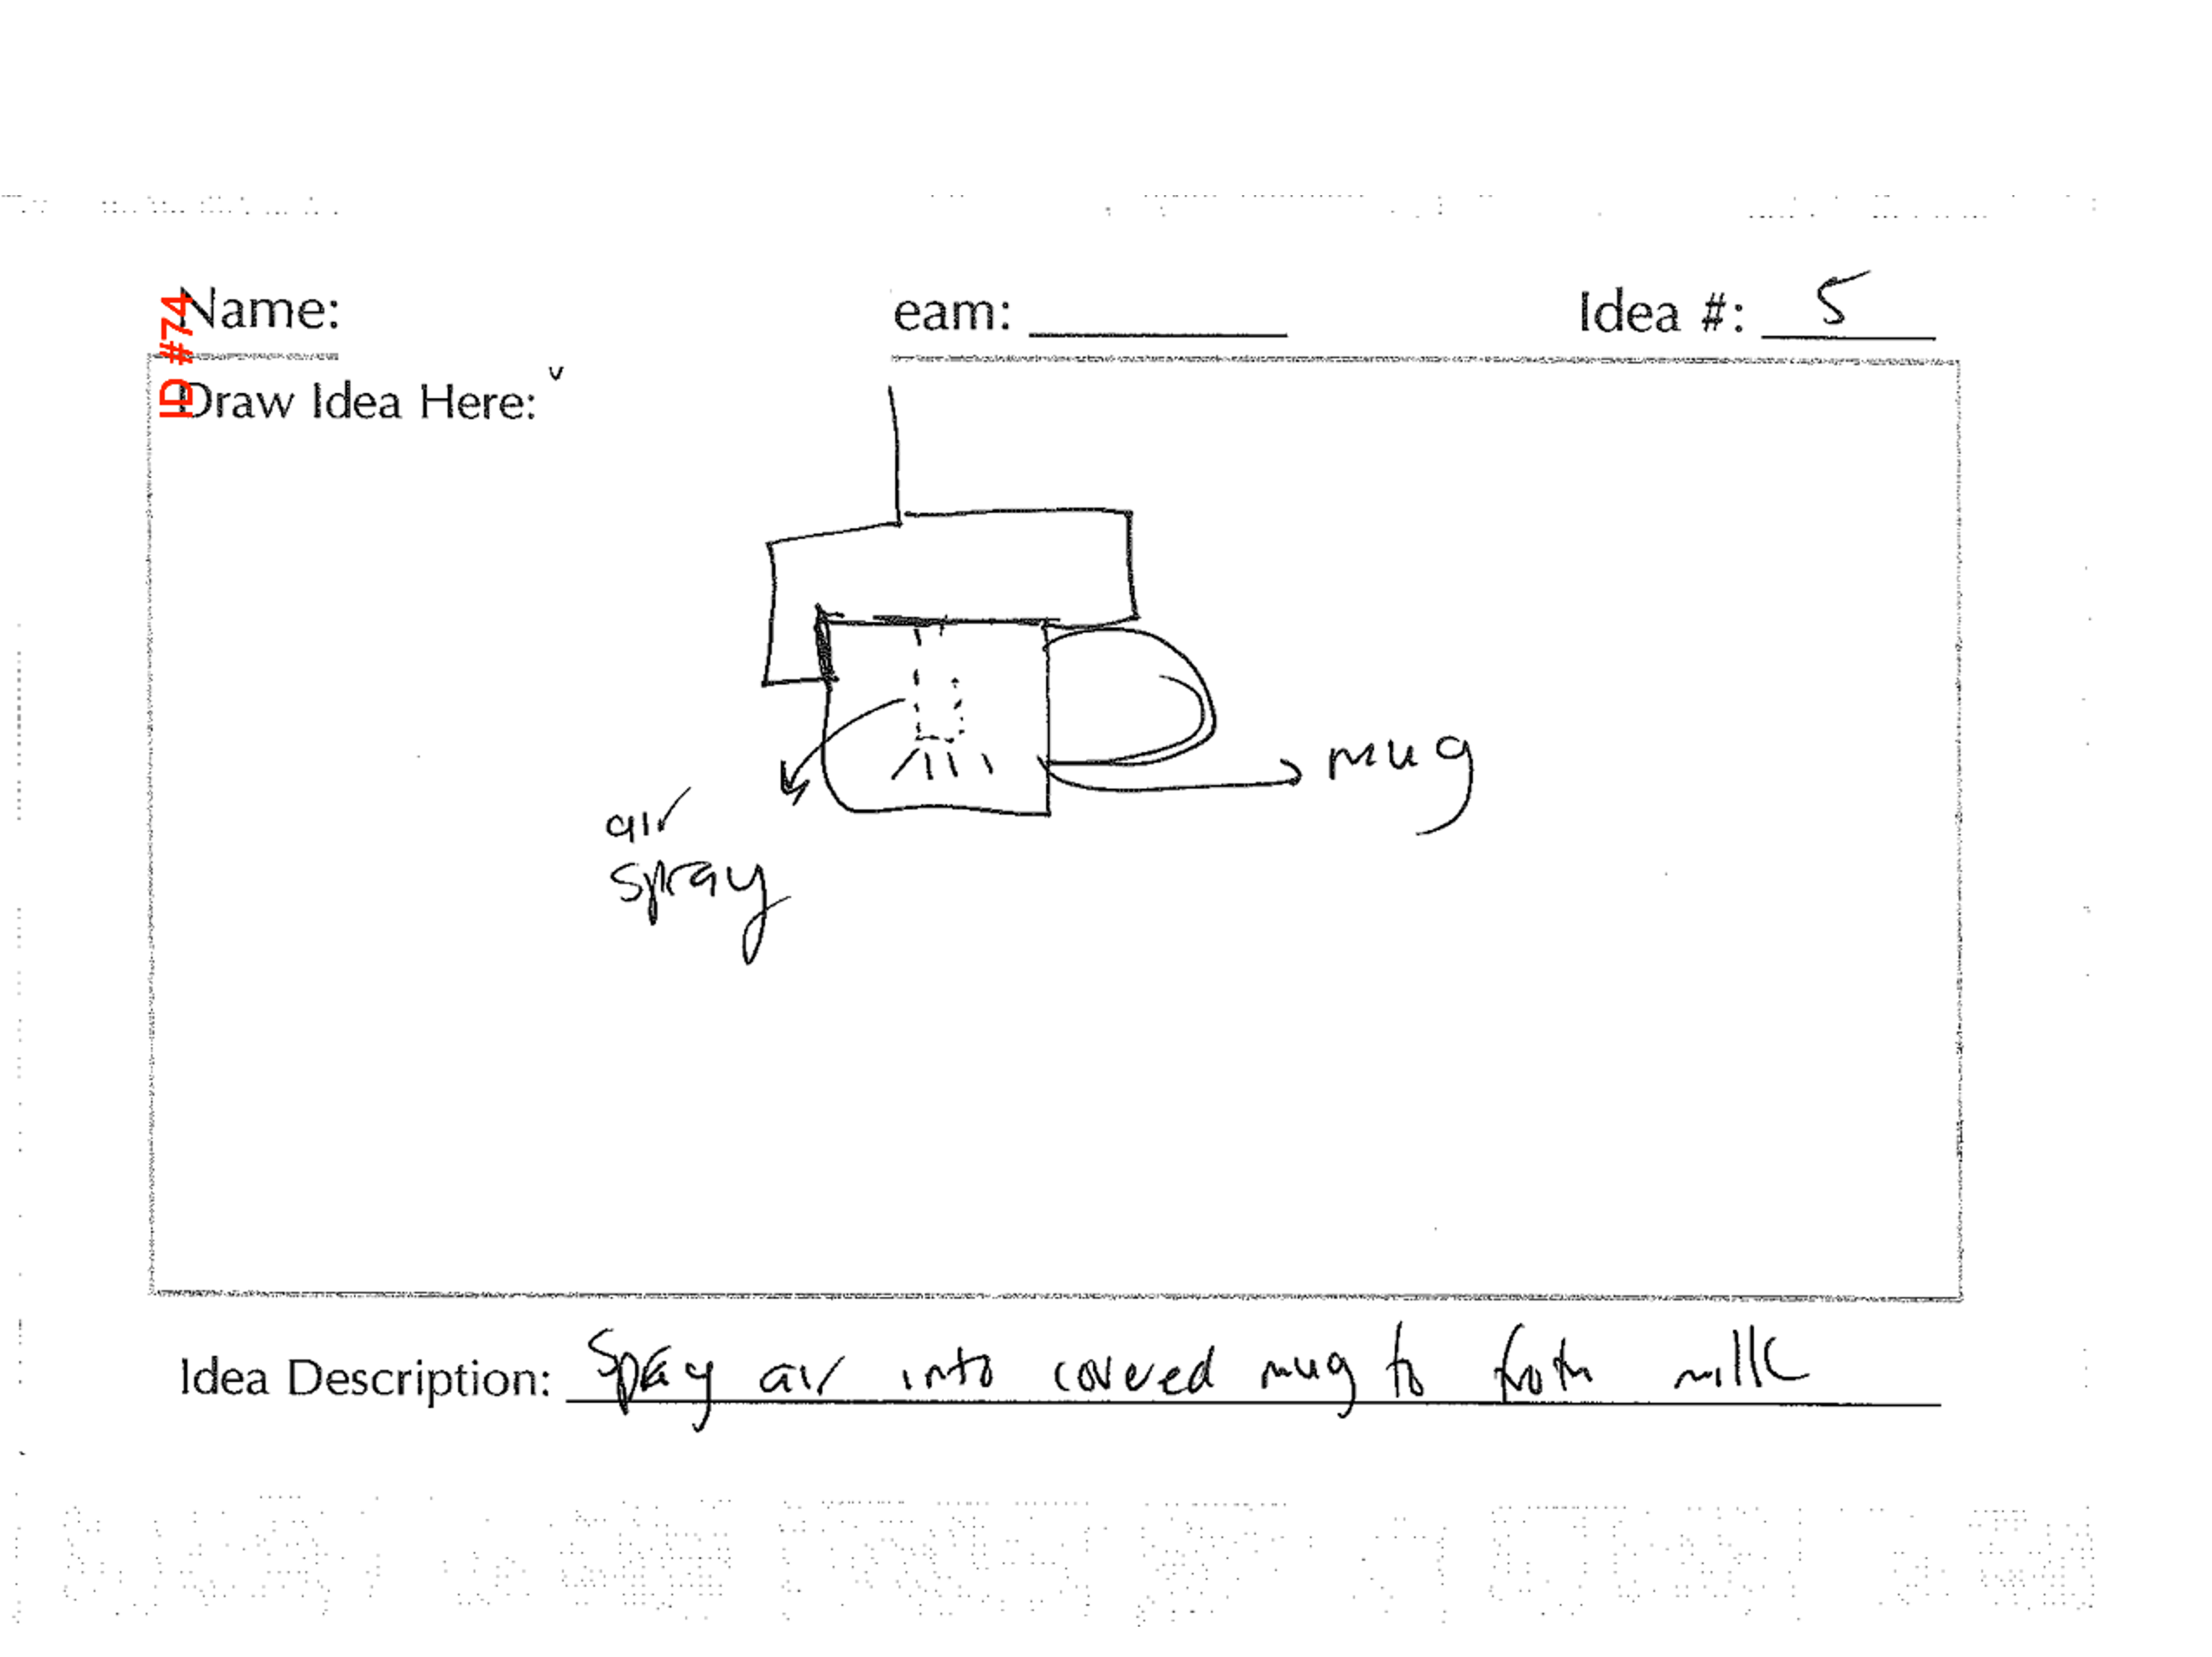 ID #74
Name:
eam:
Idea #: 5
Draw Idea Here:
mug
air
spray
Idea Description: Spray air into covered mug to froth milk